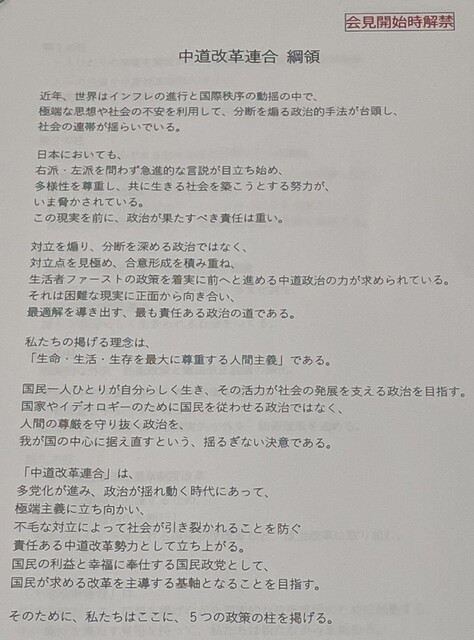 会見開始時解禁
中道改革連合 綱領
近年、世界はインフレの進行と国際秩序の動揺の中で、
極端な思想や社会の不安を利用して、分断を煽る政治的手法が台頭し、
社会の連帯が揺らいでいる。
日本においても、
右派・左派を問わず急進的な言説が目立ち始め、
多様性を尊重し、共に生きる社会を築こうとする努力が、
いま脅かされている。
この現実を前に、政治が果たすべき責任は重い。
対立を煽り、分断を深める政治ではなく、
対立点を見極め、合意形成を積み重ね、
生活者ファーストの政策を着実に前へと進める中道政治の力が求められている。
それは困難な現実に正面から向き合い、
最適解を導き出す、最も責任ある政治の道である。
私たちの掲げる理念は、
「生命・生活・生存を最大に尊重する人間主義」である。
国民一人ひとりが自分らしく生き、その活力が社会の発展を支える政治を目指す。
国家やイデオロギーのために国民を従わせる政治ではなく、
人間の尊厳を守り抜く政治を、
我が国の中心に据え直すという、揺るぎない決意である。
「中道改革連合」は、
多党化が進み、政治が揺れ動く時代にあって、
極端主義に立ち向かい、
不毛な対立によって社会が引き裂かれることを防ぐ
責任ある中道改革勢力として立ち上がる。
国民の利益と幸福に奉仕する国民政党として、
国民が求める改革を主導する基軸となることを目指す。
そのために、私たちはここに、５つの政策の柱を掲げる。